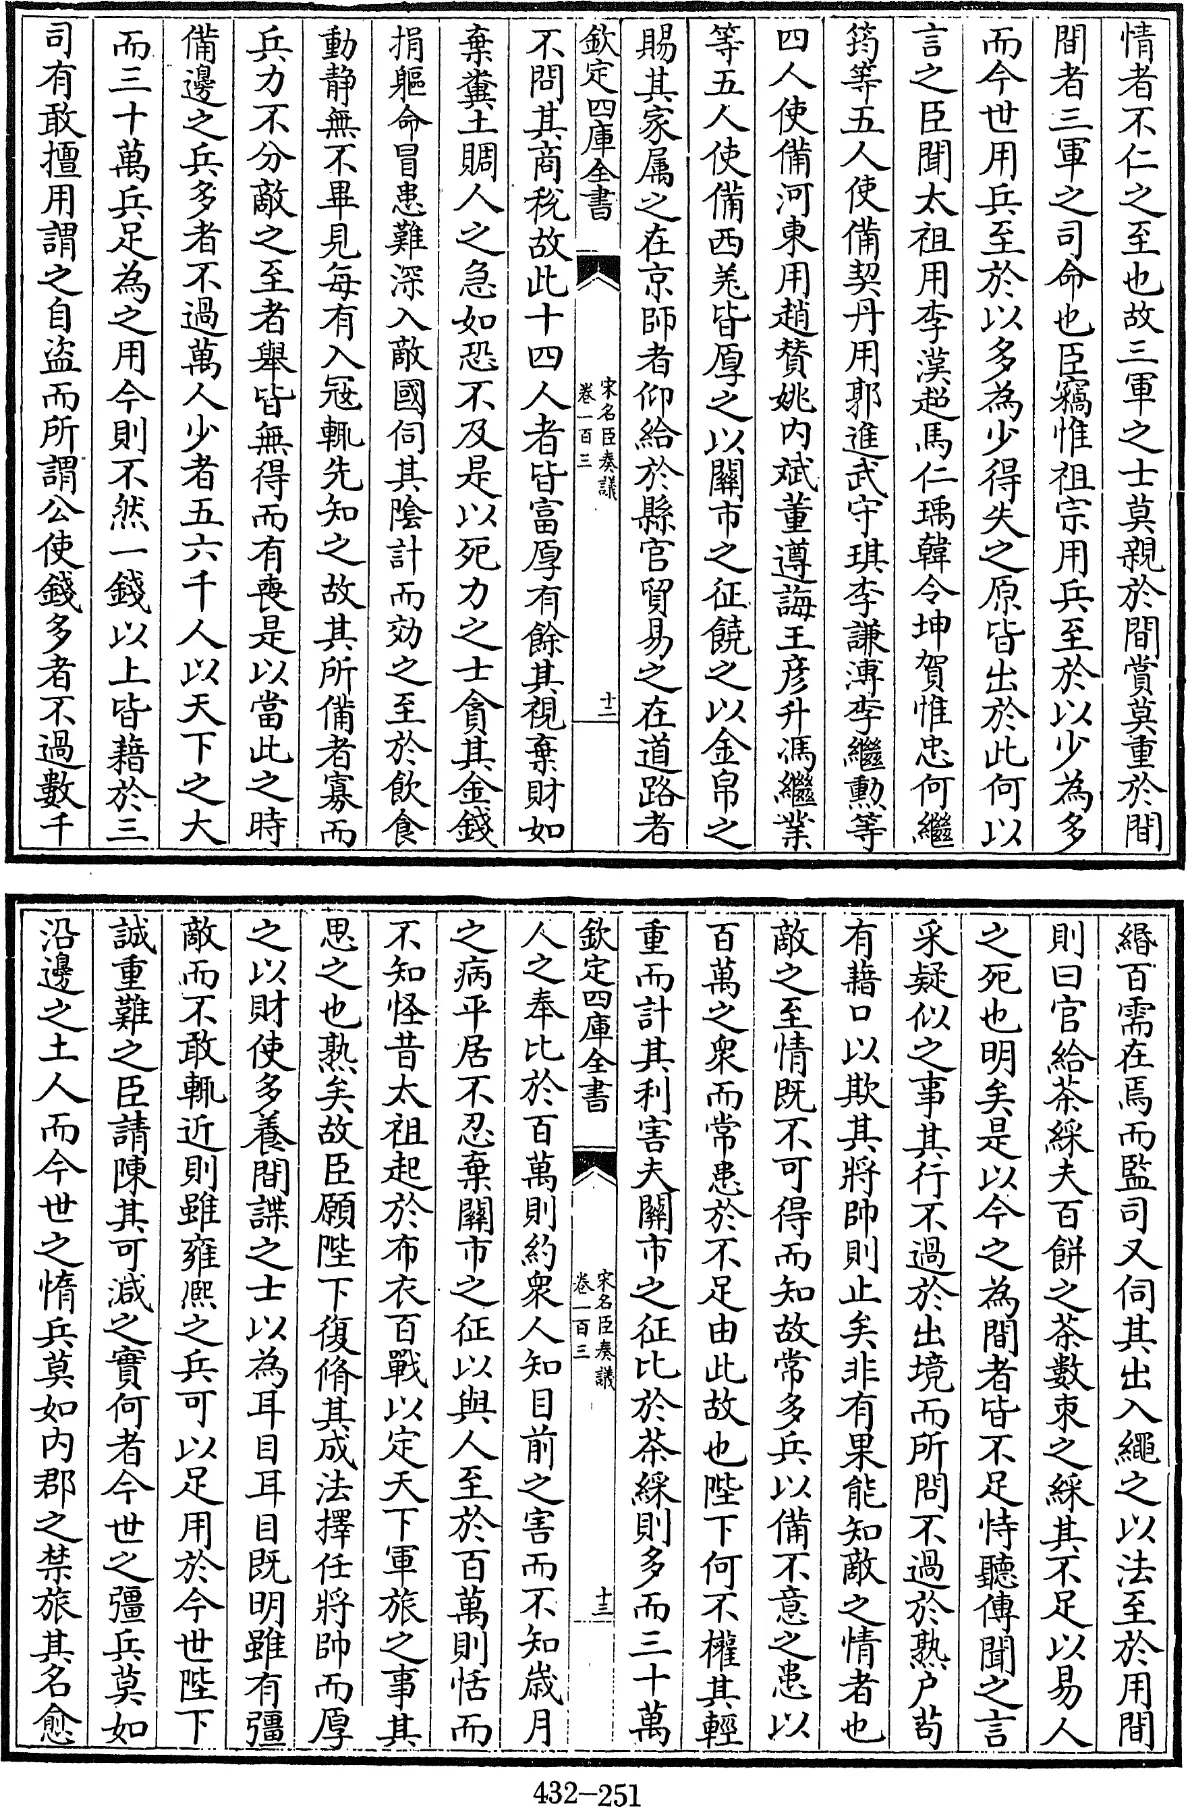 情者不仁之至也故三軍之士莫親於間賞莫重於間
間者三軍之司命也臣竊惟祖宗用兵至於以少為多
而今世用兵至於以多為少得失之原皆出於此何以
言之臣聞太祖用李漢超馬仁瑀韓令坤賀惟忠何繼
筠等五人使備契丹用郭進武守琪李謙溥李繼勲等
四人使備河東用趙賛姚内斌董遵誨王彦升馮繼業
等五人使備西羌皆厚之以關市之征饒之以金帛之
賜其家属之在京師者仰給於縣官貿易之在道路者
欽定四庫全書
宋名臣奏議
卷一百三
十二
不問其商稅故此十四人者皆富厚有餘其視棄財如
棄糞土賙人之急如恐不及是以死力之士貪其金錢
捐軀命冒患難深入敵國伺其陰計而効之至於飲食
動静無不畢見每有入冦輒先知之故其所備者寡而
兵力不分敵之至者舉皆無得而有喪是以當此之時
備邊之兵多者不過萬人少者五六千人以天下之大
而三十萬兵足為之用今則不然一錢以上皆藉於三
司有敢擅用謂之自盗而所謂公使錢多者不過數千
緡百需在焉而監司又伺其出入繩之以法至於用間
則曰官給茶綵夫百餅之茶數束之綵其不足以易人
之死也明矣是以今之為間者皆不足恃聽傳聞之言
采疑似之事其行不過於出境而所問不過於熟户苟
有藉口以欺其將帥則止矣非有果能知敵之情者也
敵之至情既不可得而知故常多兵以備不意之患以
百萬之衆而常患於不足由此故也陛下何不權其輕
重而計其利害夫關市之征比於茶綵則多而三十萬
欽定四庫全書
宋名臣奏議
卷一百三
十三
人之奉比於百萬則約衆人知目前之害而不知歲月
之病平居不忍棄關市之征以與人至於百萬則恬而
不知怪昔太祖起於布衣百戰以定天下軍旅之事其
思之也熟矣故臣願陛下復脩其成法擇任將帥而厚
之以財使多養間諜之士以為耳目耳目既明雖有彊
敵而不敢輒近則雖雍熈之兵可以足用於今世陛下
誠重難之臣請陳其可减之實何者今世之彊兵莫如
沿邊之土人而今世之惰兵莫如内郡之禁旅其名愈
432-251